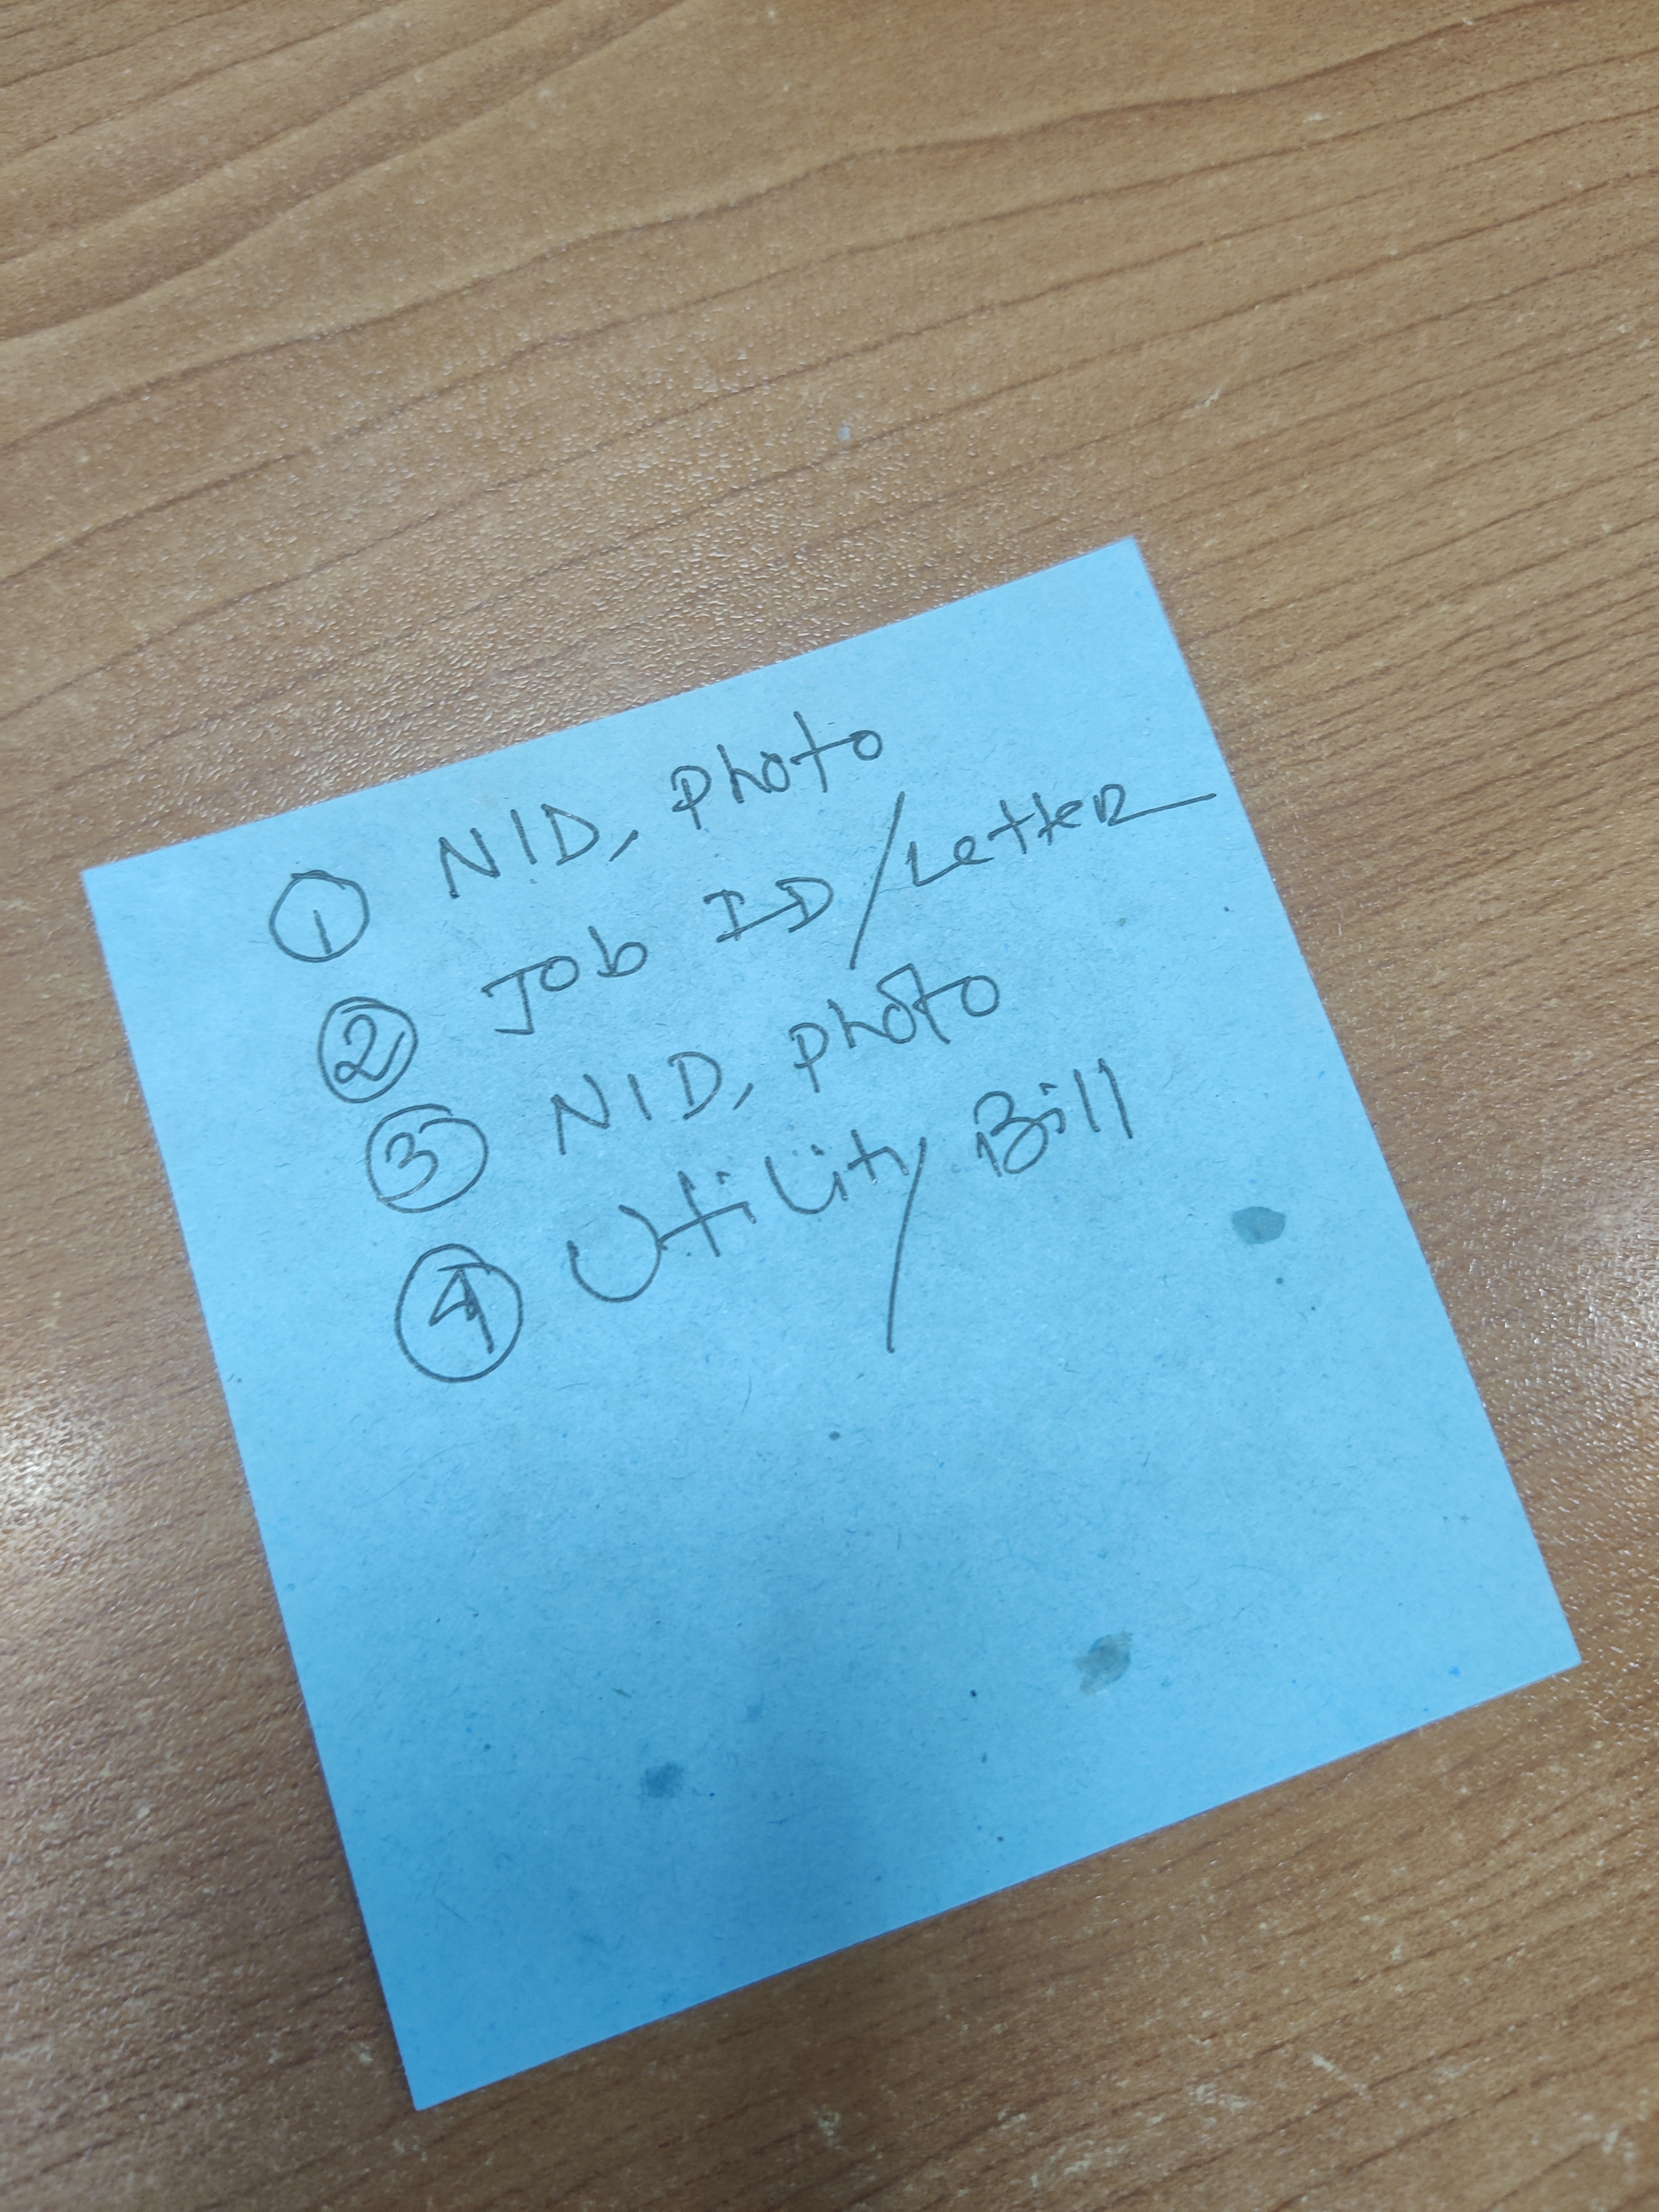 ① NID, photo
② Job ID/Letter
③ NID, photo
④ Utility Bill